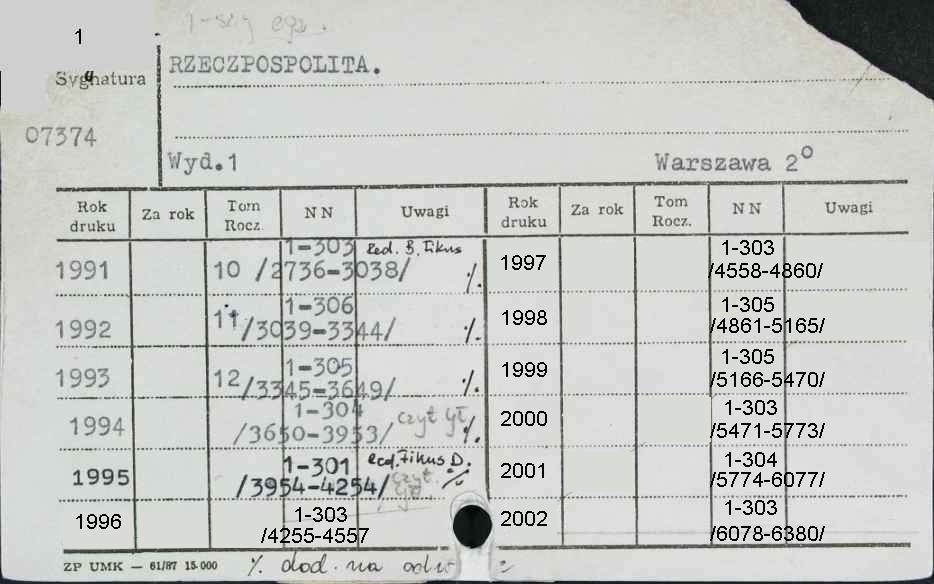 1-szy egz.
1
Sygnatura
RZECZPOSPOLITA.
07374
Wyd.1 Warszawa 2°
Rok druku Za rok Tom Rocz. NN Uwagi Rok druku Za rok Tom Rocz. NN Uwagi
1991 10 1-303 /2736-3038/ Red. B. Fikus %. 1997 1-303 /4558-4860/
1992 11 1-306 /3039-3344/ %. 1998 1-305 /4861-5165/
1993 12 1-305 /3345-3649/ %. 1999 1-305 /5166-5470/
1994 1-304 /3650-3953/ czyt Gł %. 2000 1-303 /5471-5773/
1995 1-301 /3954-4254/ red. Fikus D. czyt. Gł. % 2001 1-304 /5774-6077/
1996 1-303 /4255-4557 2002 1-303 /6078-6380/
ZP UMK — 61/87 15.000 %. dod. na